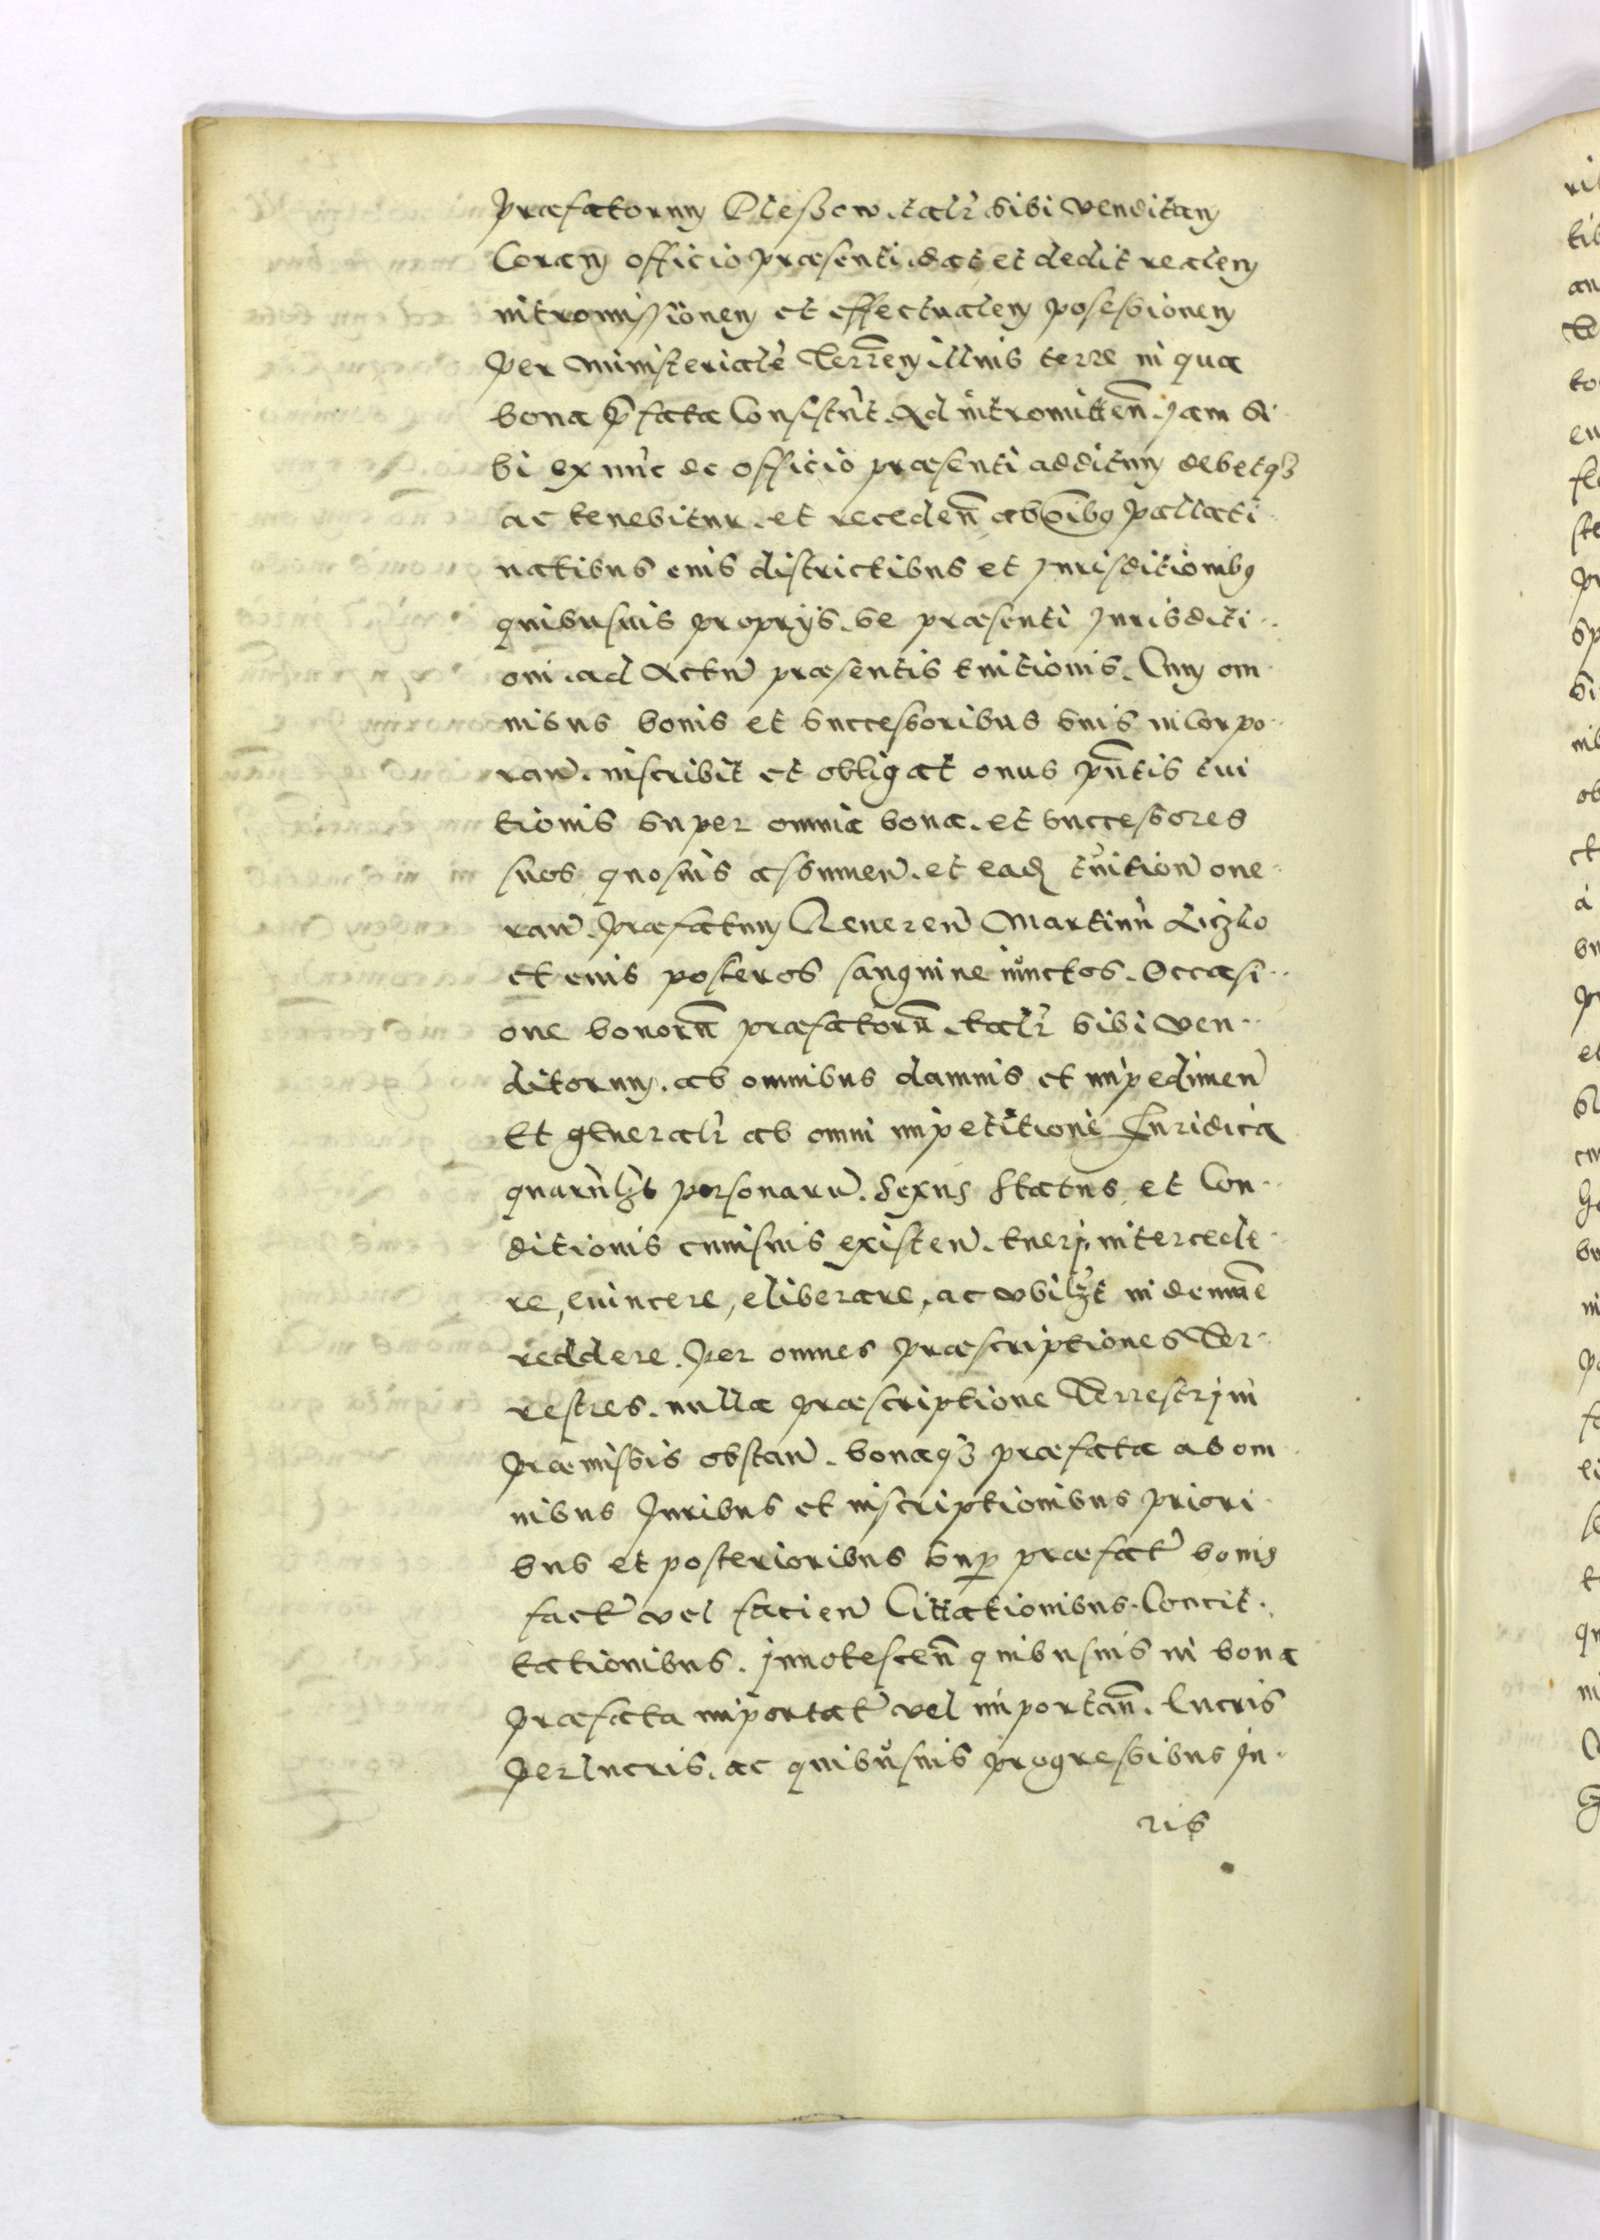 præfatorum Olessow. talr̃ sibi venditam
Coram officio præsenti. dat et dedit realem
intromissionem et effectualem posessionem
per ministerialẽ Terrẽm illius terre in qua
bona p̃fata Consistũt. Ad intromitteñ. Jam Si
bi ex nũc de officio præsenti additum debetqȝ
ac tenebitur. et recedeñ ab oĩbȝ Pallati
natibus eius districtibus et Jurisditionibȝ
quibusuis proprijs. se præsenti Jurisditi
oni. ad Actũ præsentis tuitionis. Cum om
nibus bonis et successoribus suis inCorpo
rañ. inscribit et obligat onus pñtis tui
tionis super omnia bona. et successores
suos quosuis assumeñ. et ead tuitioñ one
rañ. Præfatum Venereñ Martinũ Liczko
et eius posteros sanguine iunctos. Occasi
one bonorũ præfatorũ. talr̃ sibi ven
ditorum. ab omnibus damnis et impedimeñ
Et generalr̃ ab omni impetitione Juridica
quarũlȝt personarũ. Sexus Status et Con
ditionis cuiusuis existeñ. tueri, intercede
re, euincere, eliberare, ac vbilȝt indemnẽ
reddere. Per omnes præscriptiones Ter
restres. nulla præscriptione Terrestri in
præmissis obstañ. bonaqȝ præfata ab om
nibus Juribus et inscriptionibus priori
bus et posterioribus sup præfat̃ bonis
fact̃ vel facieñ Cittationibus. Concit
tationibus. Jnnotesceñ quibusuis in bona
præfata importat̃ vel importañ. lucris
perlucris. ac quibusuis progressibus Ju
ris